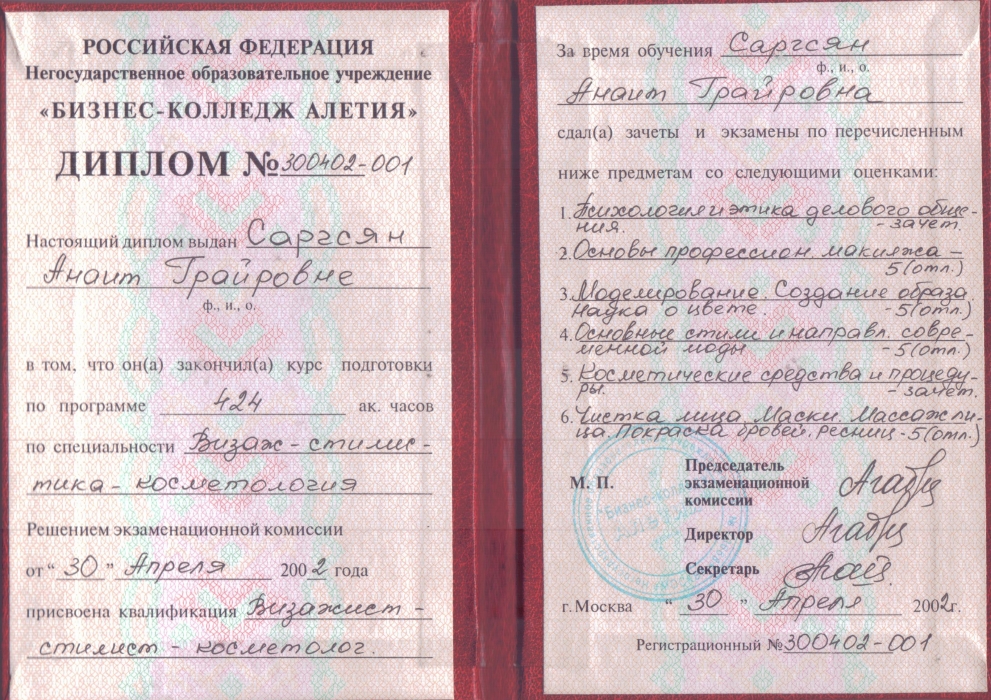 РОССИЙСКАЯ ФЕДЕРАЦИЯ
Негосударственное образовательное учреждение
«БИЗНЕС-КОЛЛЕДЖ АЛЕТИЯ»
ДИПЛОМ №300402-001
Настоящий диплом выдан Саргсян
Анаит Грайровне
ф., и., о.
в том, что он(а) закончил(а) курс подготовки
по программе 424 ак. часов
по специальности Визаж-стилис-
тика-косметология
Решением экзаменационной комиссии
от “ 30 ” Апреля 2002 года
присвоена квалификация Визажист-
стилист-косметолог.
За время обучения Саргсян
ф., и., о.
Анаит Грайровна
сдал(а) зачеты и экзамены по перечисленным
ниже предметам со следующими оценками:
1. Психология и этика делового обще-
ния. - зачет.
2. Основы профессион. макияжа –
5(отл.)
3. Моделирование. Создание образа.
наука о цвете. -5(отл.)
4. Основные стили и направл. совре-
менной моды -5(отл.)
5. Косметические средства и процеду-
ры. - зачет.
6. Чистка лица. Маски. Массаж ли-
ца. Покраска бровей. ресниц -5(отл.)
М. П.
Председатель
экзаменационной
комиссии
Директор
Секретарь
г. Москва “ 30 ” Апреля 2002г.
Регистрационный №300402-001